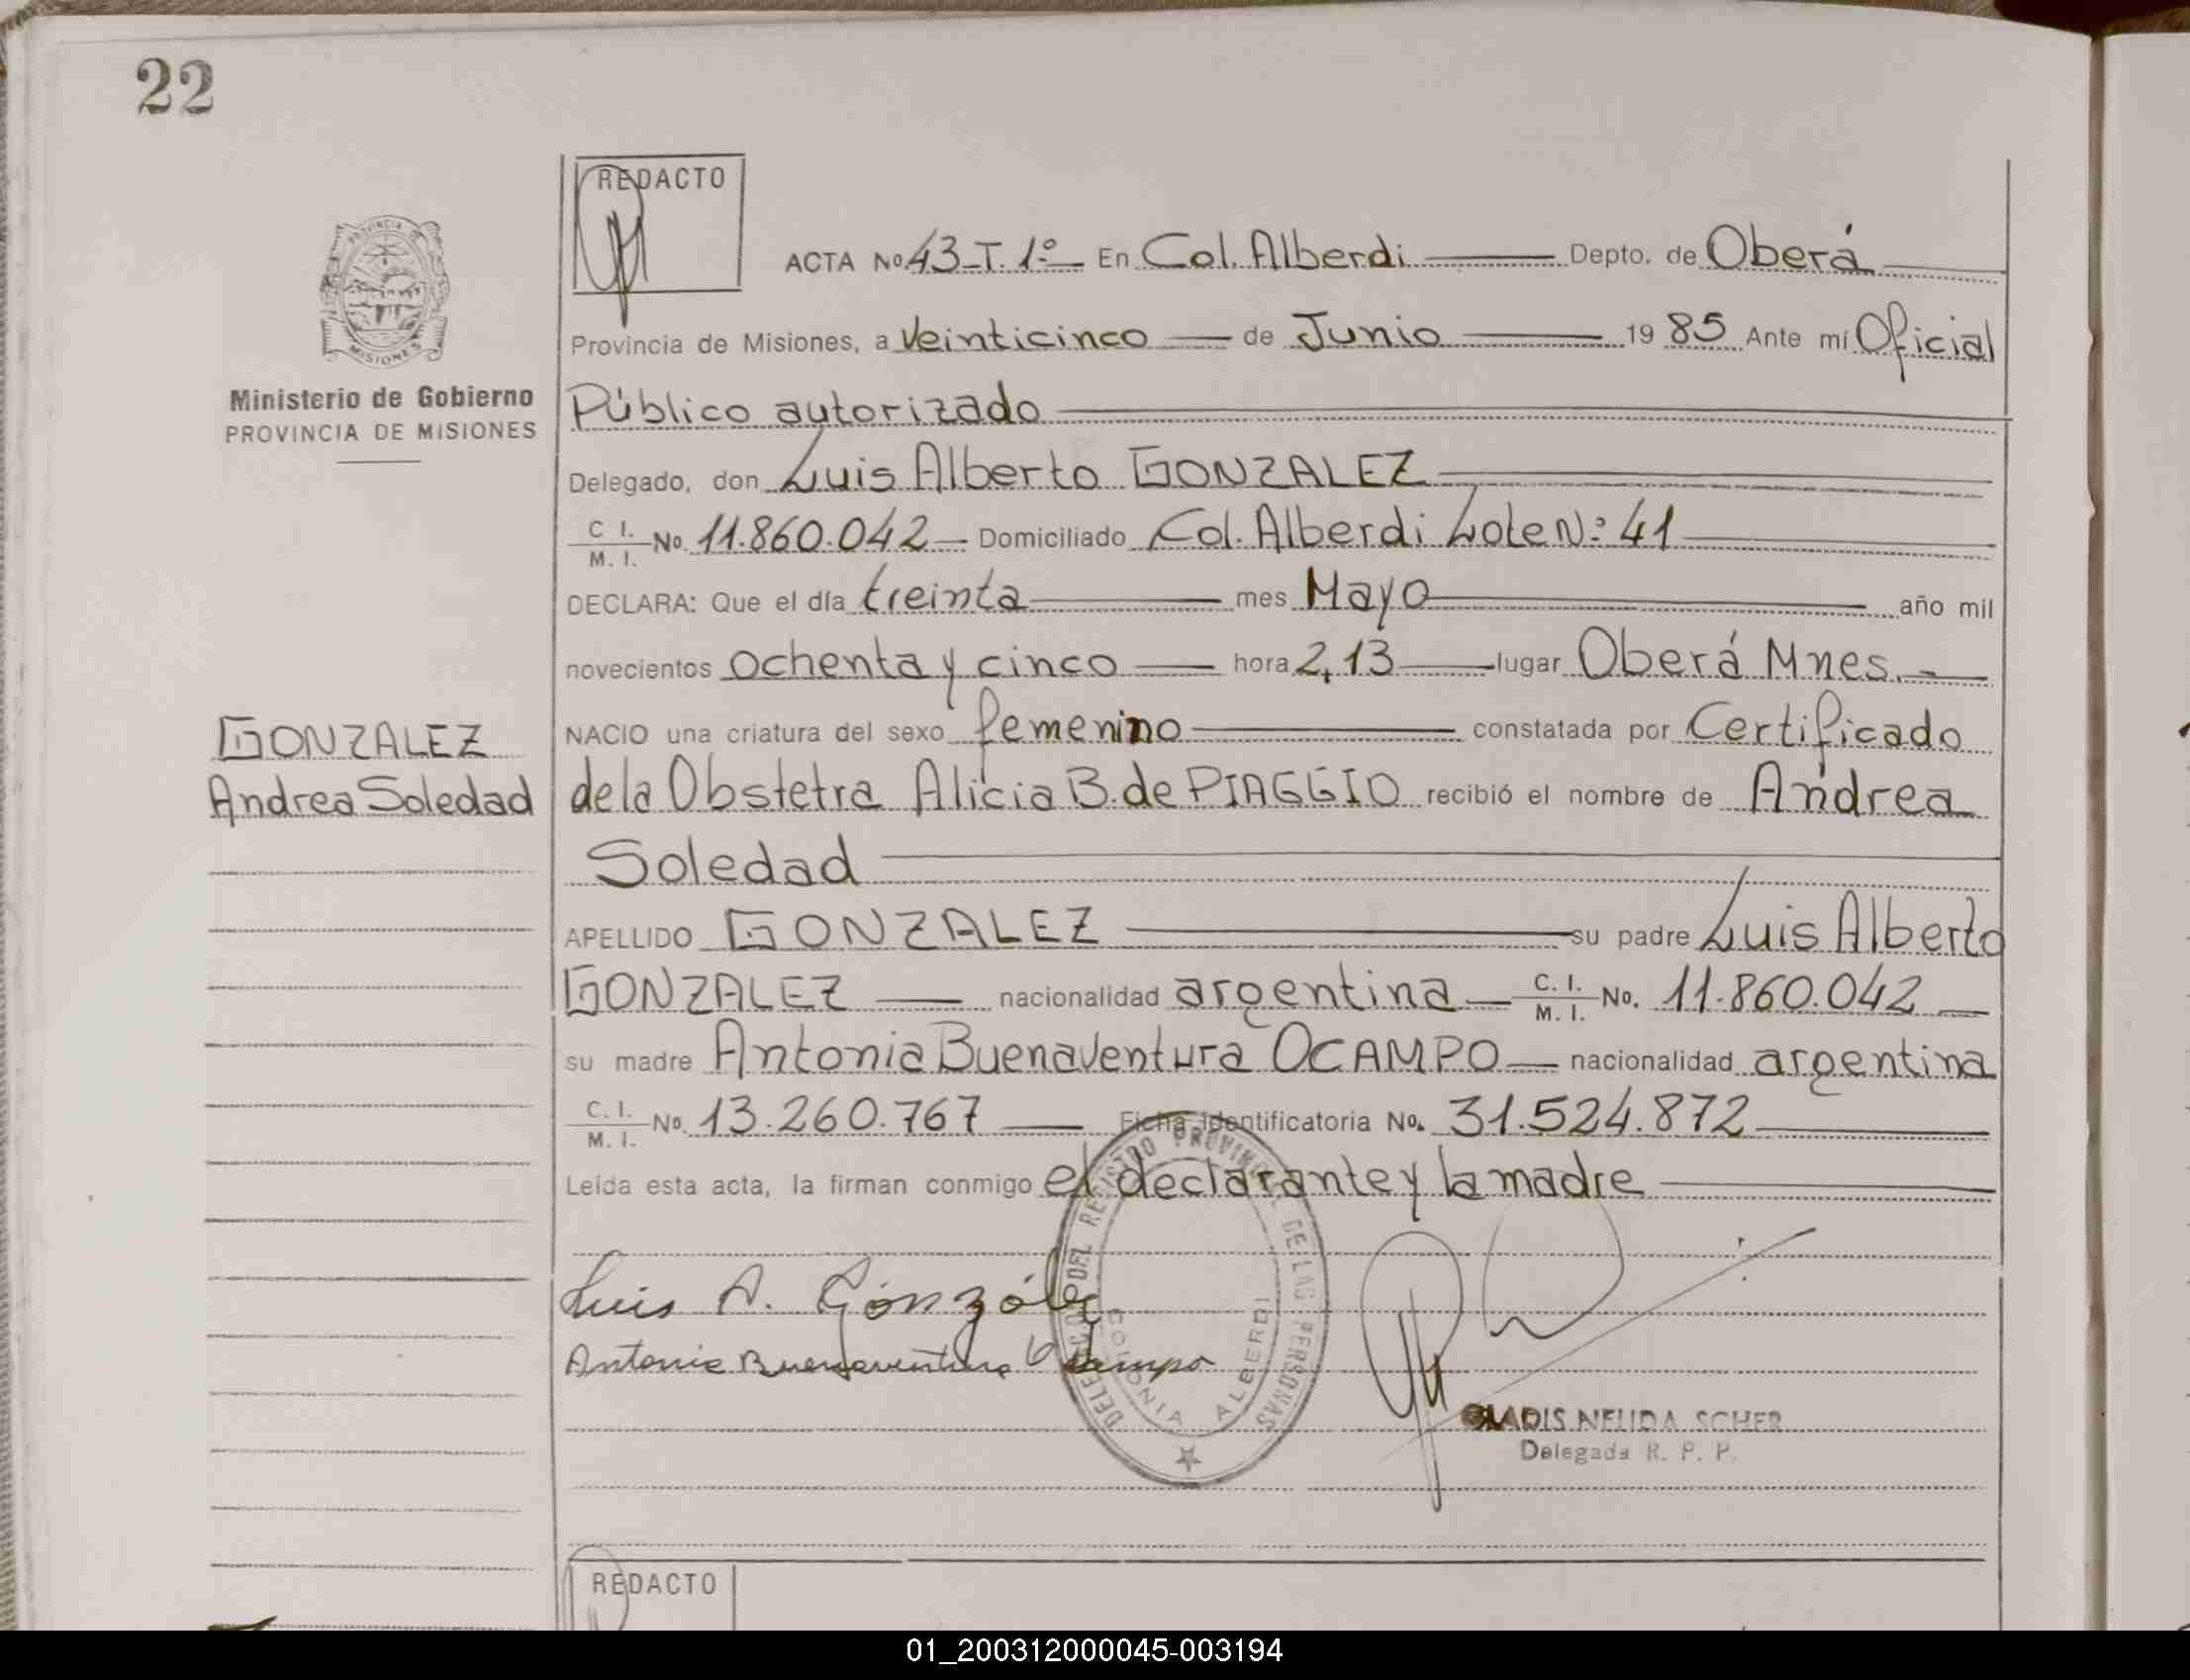 22
REDACTO
ACTA No. 43-T. 1º En Col. Alberdi Depto. de Oberá
PROVINCIA DE MISIONES
Provincia de Misiones, a Veinticinco de Junio 1985 Ante mí Oficial
Ministerio de Gobierno
PROVINCIA DE MISIONES
Público autorizado
Delegado, don Luis Alberto GONZALEZ
C I. M. I. No. 11.860.042 Domiciliado Col. Alberdi Lote Nº 41
DECLARA: Que el día treinta mes Mayo año mil
novecientos ochenta y cinco hora 2,13 lugar Oberá Mnes.
GONZALEZ
NACIO una criatura del sexo femenino constatada por Certificado
Andrea Soledad
de la Obstetra Alicia B. de PIAGGIO recibió el nombre de Andrea
Soledad
APELLIDO GONZALEZ su padre Luis Alberto
GONZALEZ nacionalidad argentina C. I. M. I. No. 11.860.042
su madre Antonia Buenaventura OCAMPO nacionalidad argentina
C. I. M. I. No. 13.260.767 Ficha Identificatoria No. 31.524.872
Leída esta acta, la firman conmigo el declarante y la madre
Luis A. González
Antonia Buenaventura Ocampo
DEL REGISTRO PROVINCIAL DE LAS PERSONAS
COLONIA ALBERDI
GLADIS NELIDA SCHER
Delegada R. P. P.
REDACTO
01_200312000045-003194